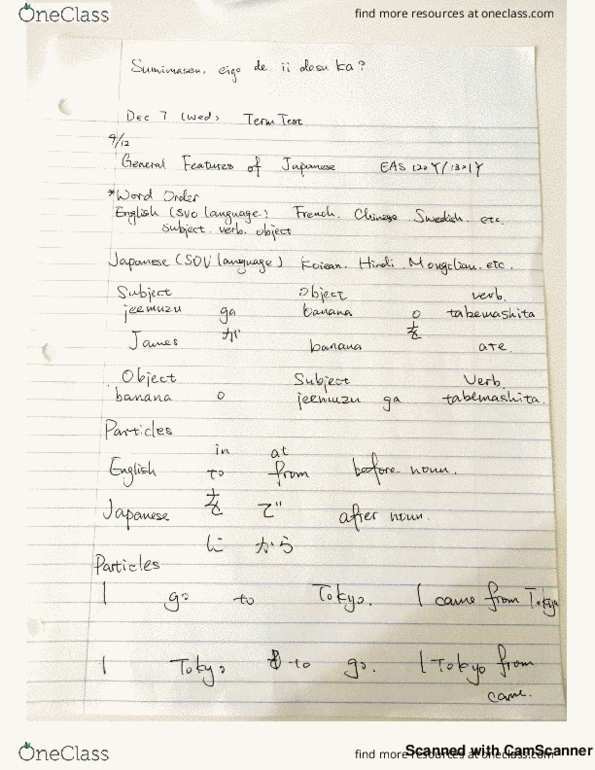 OneClass
find more resources at oneclass.com
Sumimasen, eigo de ii desu ka?
Dec 7 (Wed) Term Test
9/12
General Features of Japanese EAS 120Y/1301Y
*Word Order
English (SVO language.) French. Chinese Swedish. etc.
subject. verb. object
Japanese (SOV language) Korean. Hindi. Mongolian. etc.
Subject Object verb.
jeemuzu ga banana o tabemashita
James が banana を ate.
Object Subject Verb.
banana o jeemuzu ga tabemashita.
Particles
in at
English to from before noun.
Japanese を で after noun.
に から
Particles
I go to Tokyo. I came from Tokyo
I Tokyo to go. I Tokyo from
came.
OneClass
find more resources at oneclass.com
Scanned with CamScanner